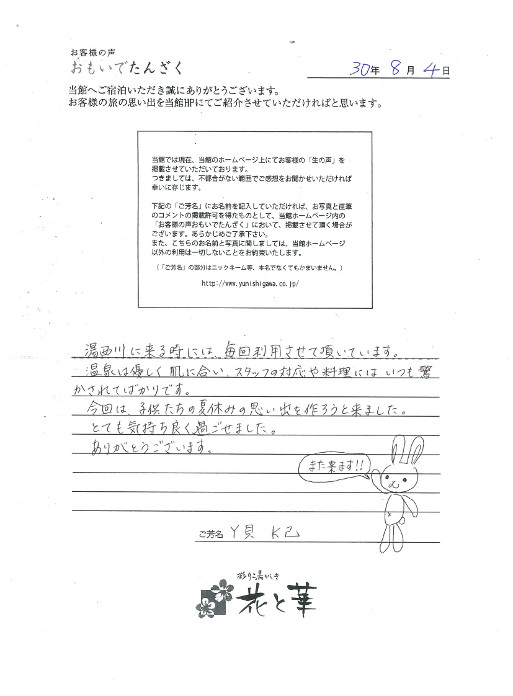 お客様の声
おもいでたんざく
30年 8月 4日
当館へご宿泊いただき誠にありがとうございます。
お客様の旅の思い出を当館HPにてご紹介させていただければと思います。
当館では現在、当館のホームページ上にてお客様の「生の声」を
掲載させていただいております。
つきましては、不都合がない範囲でご感想をお聞かせいただければ
幸いに存じます。
下記の「ご芳名」にお名前を記入していただければ、お写真と直筆
のコメントの掲載許可を得たものとして、当館ホームページ内の
「お客様の声おもいでたんざく」において、掲載させて頂く場合が
ございます。あらかじめご了承下さい。
また、こちらのお名前と写真に関しましては、当館ホームページ
以外の利用は一切しないことをお約束いたします。
(「ご芳名」の部分はニックネーム等、本名でなくてもかまいません。)
http://www.yunishigawa.co.jp/
湯西川に来る時には、毎回利用させて頂いています。
温泉は優しく肌に合い、スタッフの対応や料理にはいつも驚
かされてばかりです。
今回は、子供たちの夏休みの思い出を作ろうと来ました。
とても気持ち良く過ごせました。
ありがとうございます。
また来ます!!
ご芳名 Y貝 K己
彩り湯かしき
花と華